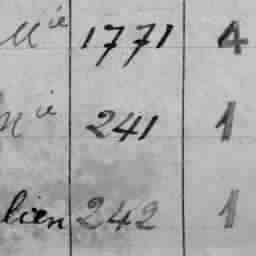 Mie 1771 4
Mie 241 1
lien 242 1